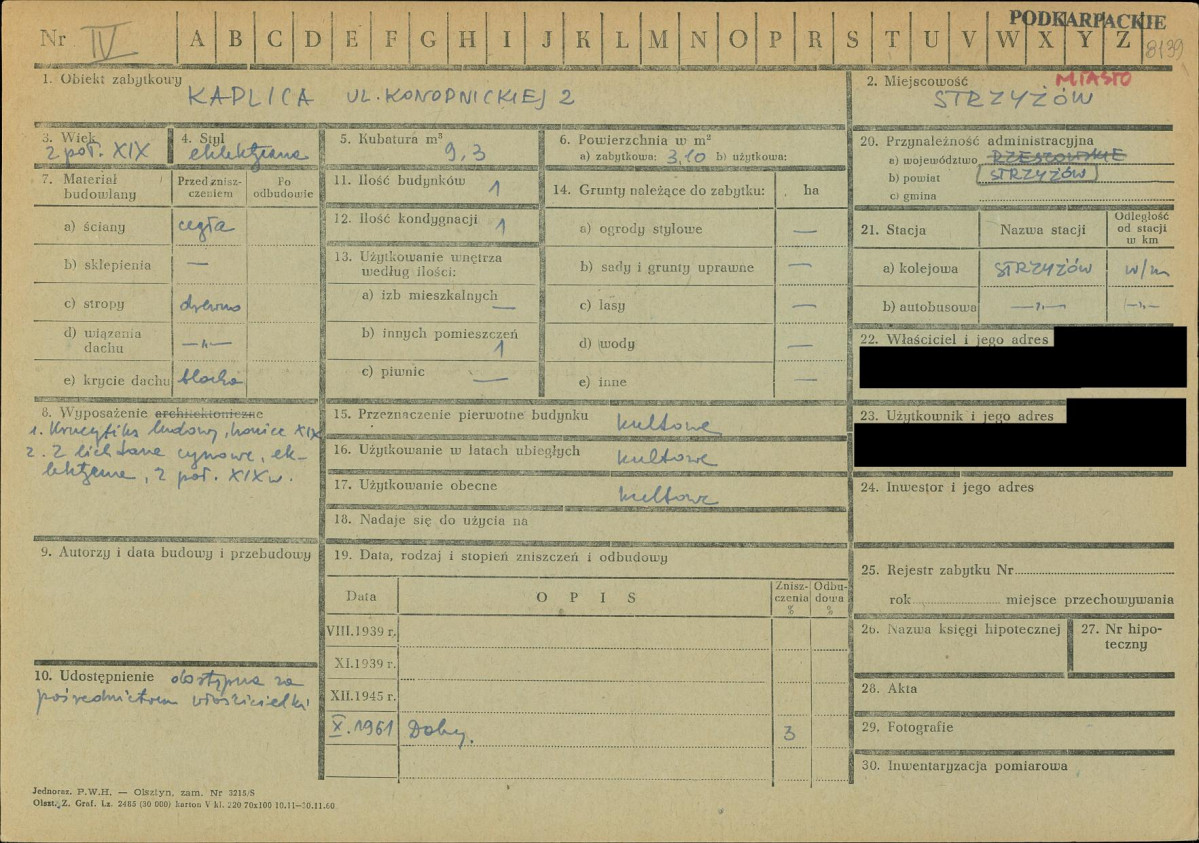 PODKARPACKIE
Nr IV A B C D E F G H I J K L M N O P R S T U V W X Y Z 8139
1. Obiekt zabytkowy KAPLICA UL. KONOPNICKIEJ 2
2. Miejscowość MIASTO
STRZYŻÓW
3. Wiek
2 poł. XIX
4. Styl
eklektyczna
5. Kubatura m³
9,3
6. Powierzchnia w m²
a) zabytkowa: 3,10 b) użytkowa:
7. Materiał budowlany
Przed znisz-
czeniem
Po
odbudowie
a) ściany cegła
b) sklepienia —
c) stropy drewno
d) wiązania
dachu —„—
e) krycie dachu blacha
8. Wyposażenie architektoniczne
1. Krucyfiks ludowy, koniec XIX
2. 2 lichtarze cynowe, ek-
lektyczne, 2 poł. XIX w.
9. Autorzy i data budowy i przebudowy
10. Udostępnienie dostępna za
pośrednictwem właścicielki
11. Ilość budynków 1
12. Ilość kondygnacji 1
13. Użytkowanie wnętrza
według ilości:
a) izb mieszkalnych —
b) innych pomieszczeń
1
c) piwnic —
14. Grunty należące do zabytku: ha
a) ogrody stylowe —
b) sady i grunty uprawne —
c) lasy —
d) wody —
e) inne —
15. Przeznaczenie pierwotne budynku kultowe
16. Użytkowanie w latach ubiegłych kultowe
17. Użytkowanie obecne kultowe
18. Nadaje się do użycia na
19. Data, rodzaj i stopień zniszczeń i odbudowy
Data OPIS Znisz-
czenia
% Odbu-
dowa
%
VIII.1939 r.
XI.1939 r.
XII.1945 r.
X.1961 Dobry. 3
20. Przynależność administracyjna
a) województwo RZESZOWSKIE
b) powiat STRZYŻÓW
c) gmina
21. Stacja Nazwa stacji Odległość
od stacji
w km
a) kolejowa STRZYŻÓW w/m
b) autobusowa —„— —„—
22. Właściciel i jego adres
23. Użytkownik i jego adres
24. Inwestor i jego adres
25. Rejestr zabytku Nr
rok miejsce przechowywania
26. Nazwa księgi hipotecznej
27. Nr hipo-
teczny
28. Akta
29. Fotografie
30. Inwentaryzacja pomiarowa
Jednoraz. P.W.H. — Olsztyn, zam. Nr 3215/S
Olszt. Z. Graf. Lz. 2485 (30 000) karton V kl. 220 70x100 10.11—30.11.60